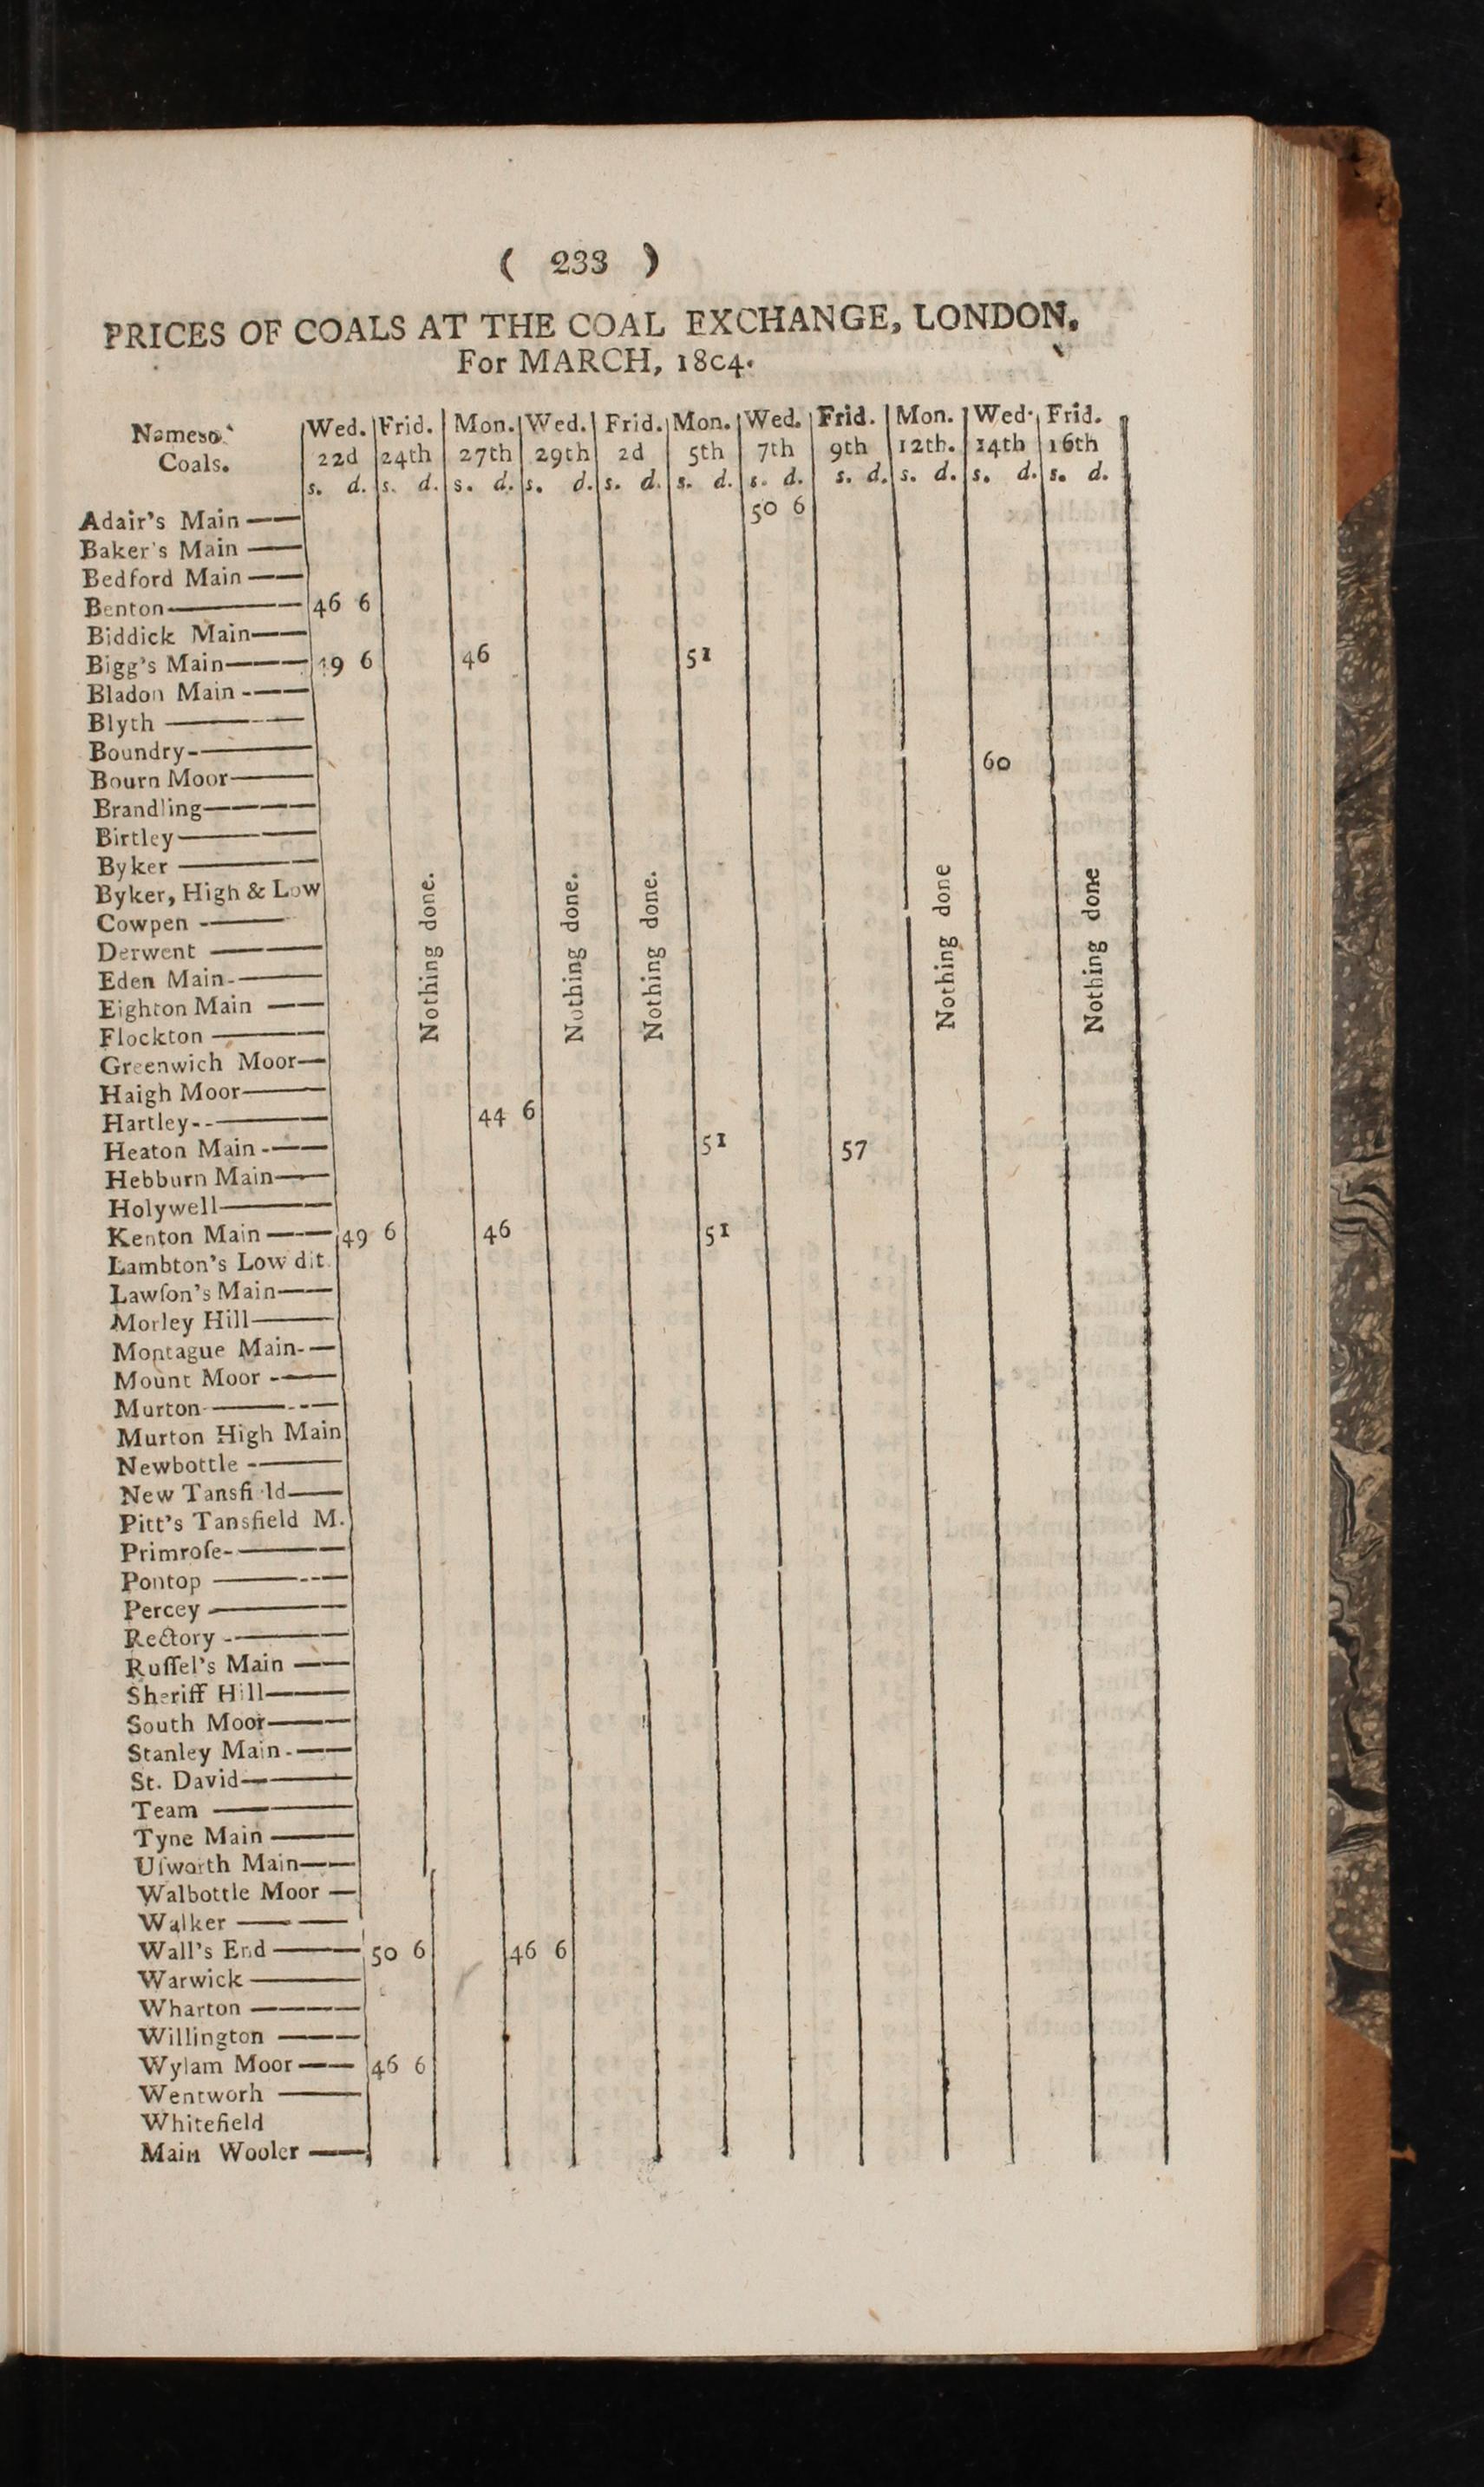 ( 233 )
PRICES OF COALS AT THE COAL EXCHANGE, LONDON.
For MARCH, 18c4.
Wed. Frid. Mon. Wed. Frid. Mon. Wed. Frid. Mon. Wed. Frid.
Names o
Coals. 22d 24th 27th 29th 2d 5th 7th 9th 12th. 14th 16th
s. d. s. d. s. d. s. d. s. d. s. d. s. d. s. d. s. d. s. d. s. d.
Adair's Main —— 50 6
Baker's Main ——
Bedford Main ——
Benton—— 46 6
Biddick Main——
Bigg's Main—— 49 6 46 51
Bladon Main -——
Blyth ——
Boundry-——
Bourn Moor—— 60
Brandling——
Birtley——
Byker ——
Byker, High & Low
Cowpen -——
Derwent ——
Eden Main-——
Eighton Main ——
Flockton ——
Greenwich Moor—
Haigh Moor——
Hartley--—— 44 6
Heaton Main -—— 51 57
Hebburn Main——
Holywell——
Kenton Main —— 49 6 46 51
Lambton's Low dit.
Lawſon's Main——
Morley Hill——
Montague Main-—
Mount Moor -——
Murton——
Murton High Main
Newbottle -——
New Tansfi ld——
Pitt's Tansfield M.
Primroſe-——
Pontop ——
Percey ——
Rectory -——
Ruſſel's Main ——
Sheriff Hill——
South Moor——
Stanley Main -——
St. David——
Team ——
Tyne Main ——
Uſworth Main——
Walbottle Moor —
Walker ——
Wall's End —— 50 6 46 6
Warwick ——
Wharton ——
Willington ——
Wylam Moor —— 46 6
Wentworh ——
Whitefield
Main Wooler ——
Nothing done.
Nothing done.
Nothing done.
Nothing done
Nothing done